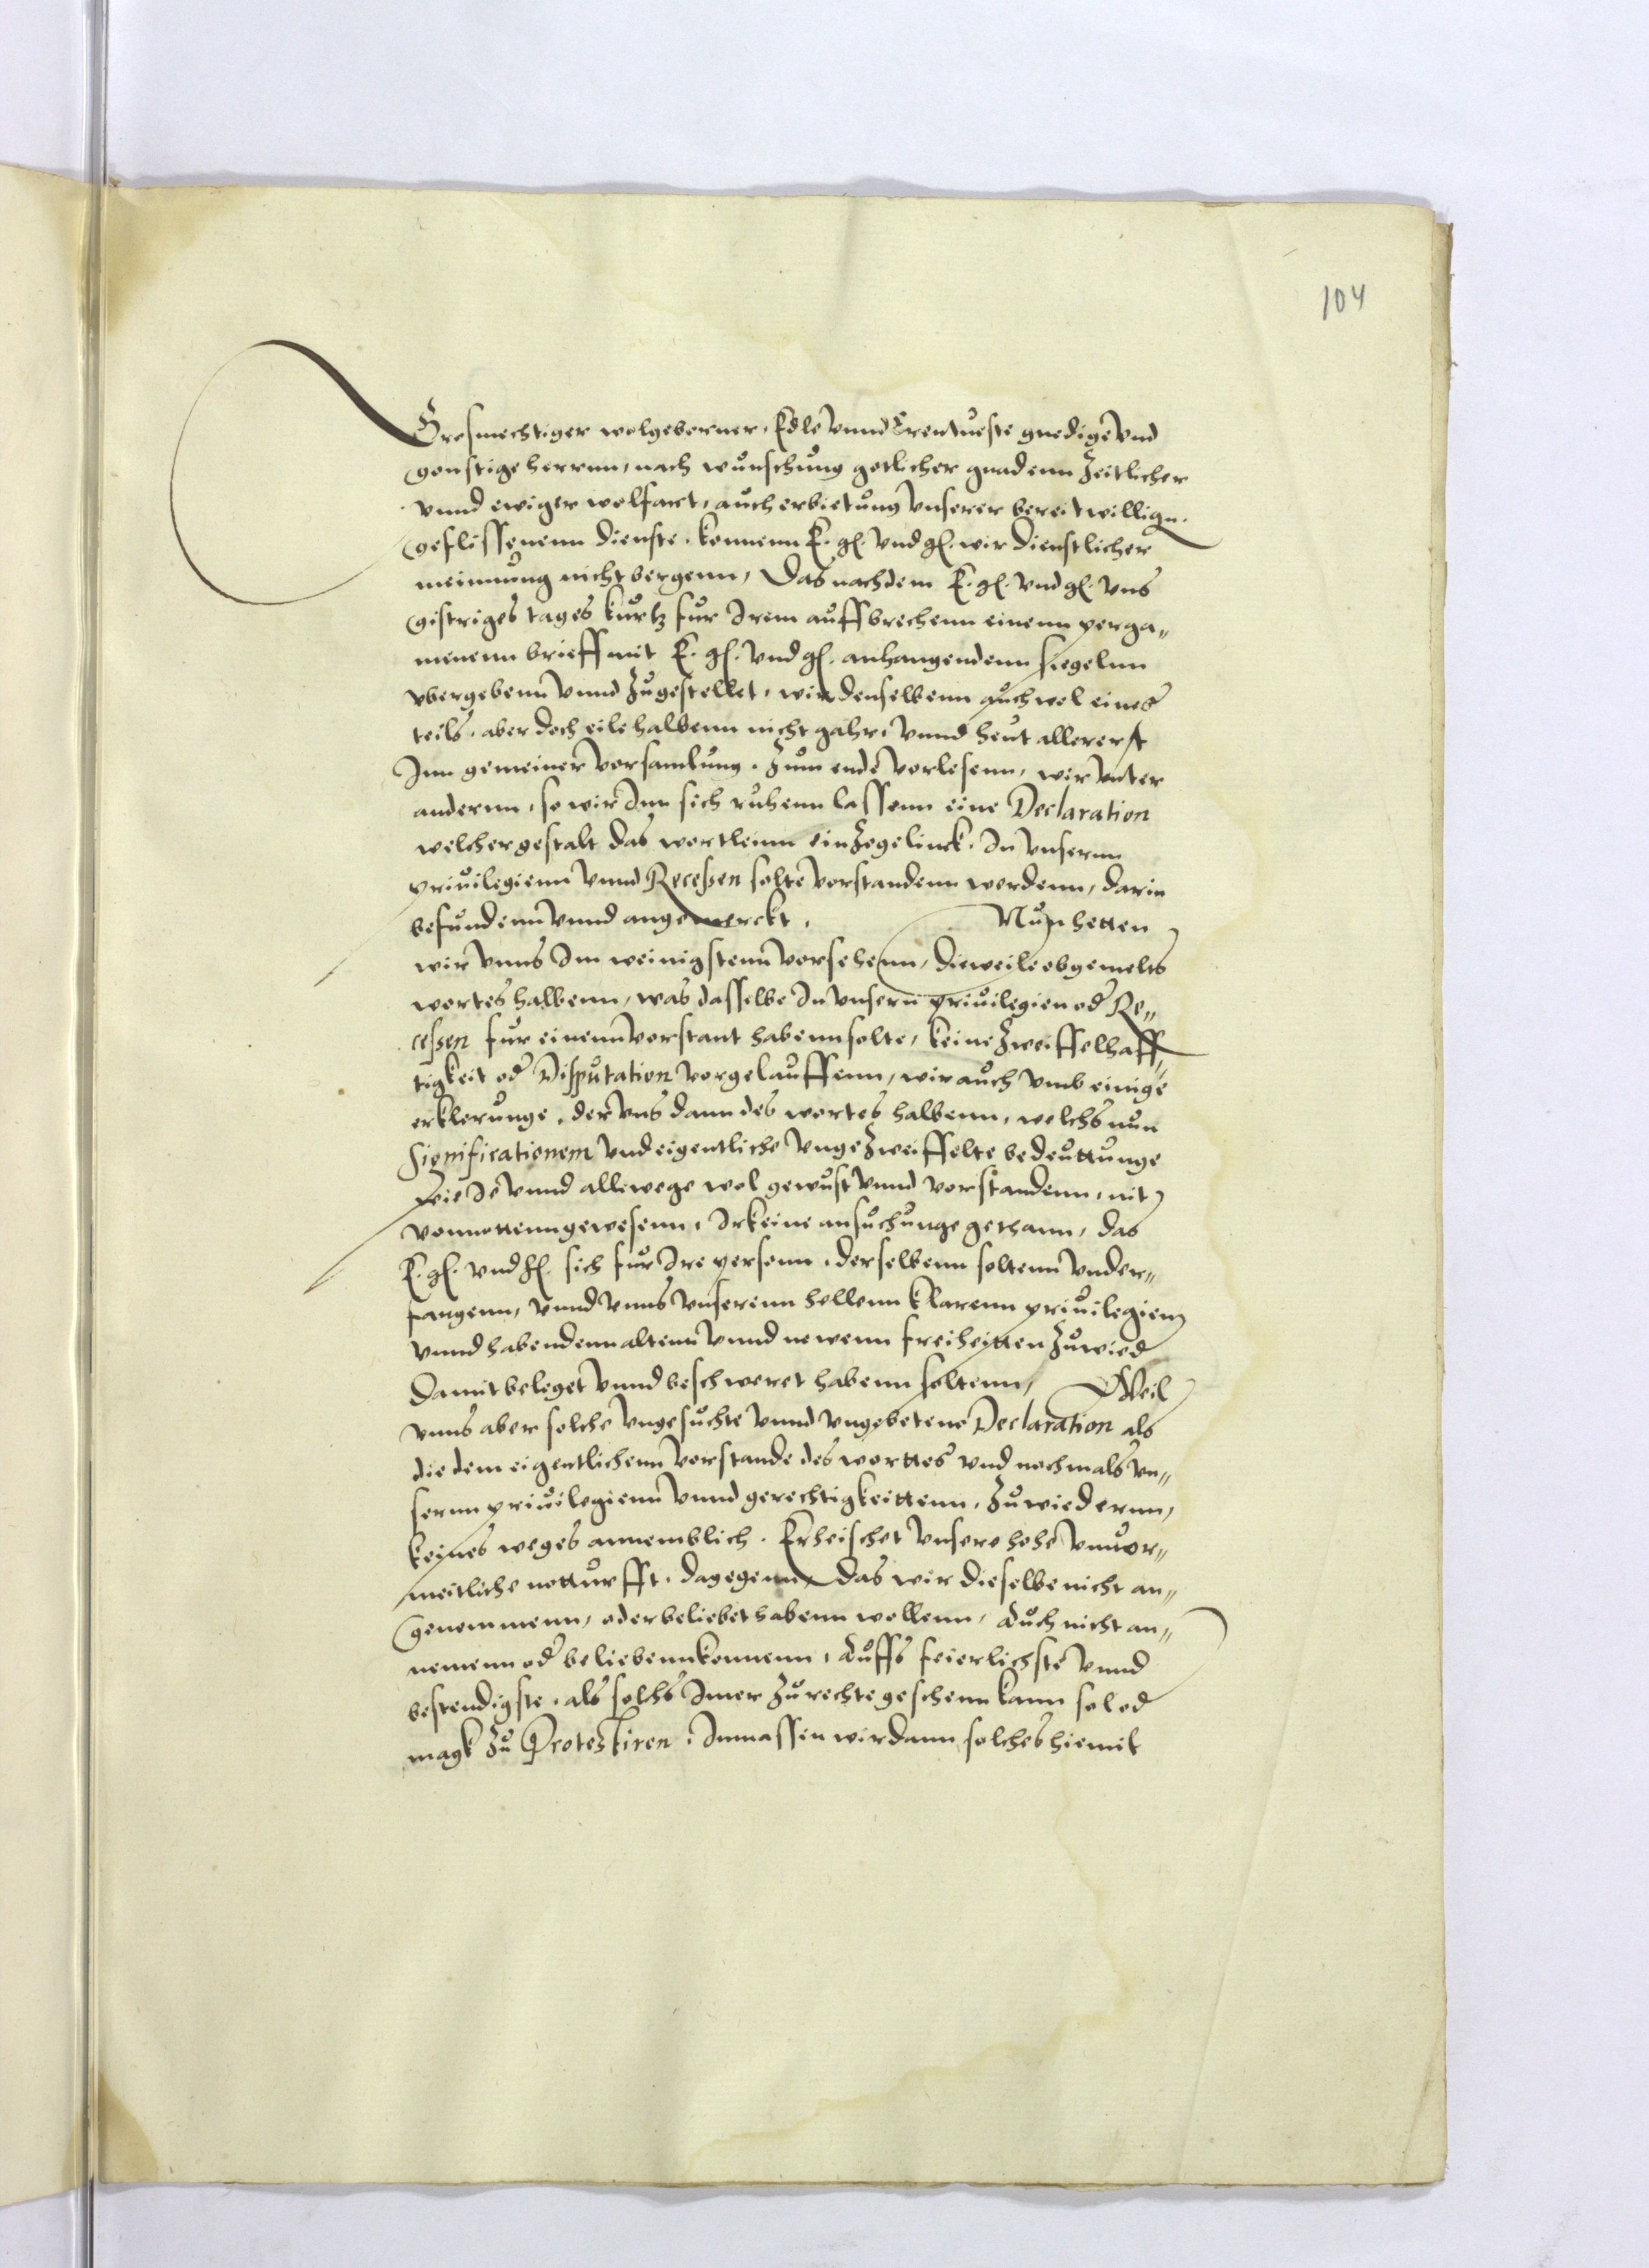 104
Grosmechtiger wolgeborner, Edle vnnd Erentueste gnedige vnd
gonstige herrnn, nach wunschung gotlicher gnadenn Zeitlicher
vnnd ewiger wolfart, auch erbietung vnserer bereit willign.
geflissenenn dienste. konnenn E. gl. vnd gl. wir dienstlicher
meinnung nicht bergenn, Das nachdem E. gl. vnd gl. vns
gistriges tages kurtz fur Irem auffbrechenn einenn perga„
menenn brieff mit E. gl. vnd gl. anhangendenn siegelnn
vbergebenn vnnd Zugestellet, wir denselbenn auch wol eines
teils, aber doch eile halbenn nicht gahr, vnnd heut allererst
Inn gemeiner vorsamlung. Zum ende vorlesenn, wir vnter
andernn, so wir Inn sich ruhenn lassenn eine Declaration
welcher gestalt das wortleinn einZogelinck. In vnsernn
priuilegienn vnnd Recessen solte vorstandenn werdenn, darin
befundenn vnnd angemerckt. Nun hetten
wir vnns Im weinigstenn vorsehenn, dieweile obgemelts
wortes halbenn, was dasselbe In vnsern priuilegien od Re„
cessen fur einenn vorstant habenn solte, keine Zweiffelhaff„
tigkeit od Disputation vorgelauffenn, wir auch vmb einige
erklerunge, der vns dann des wortes halbenn, welchs nun
significationem vnd eigentliche vngeZweiffelte bedeuttunge
wie Je vnnd allewege wol gewust vnnd vorstandenn, nit
vonnottenn gewesenn, Irkeine ansuchunge gethann, das
E. gl. vnd gl. sich fur Ire personn. derselbenn soltenn vnder„
fangenn, vnnd vnns vnserenn hellenn klarenn priuilegien
vnnd habendenn altenn vnnd newenn freiheitten Zuwied
Damit beleget vnnd beschweret habenn soltenn, Weil
vnns aber solche vngesuchte vnnd vngebetene Declaration als
die dem eigentlichenn vorstande des worttes vnd nochmals vn„
sernn priuilegienn vnnd gerechtigkeittenn, Zuwiedernn,
keines weges annemblich. Erheischet vnsere hohe vnuor„
meitliche notturfft, dagegenn, das wir dieselbe nicht an„
genommenn, oder beliebet habenn wollenn, Auch nicht an„
nemenn od beliebenn konnenn, Auffs feierlichste vnnd
bestendigste, als solchs Imer Zu rechte geschenn kann sol od
magk Zu Protestiren. Inmassen wir dann solches hiemit